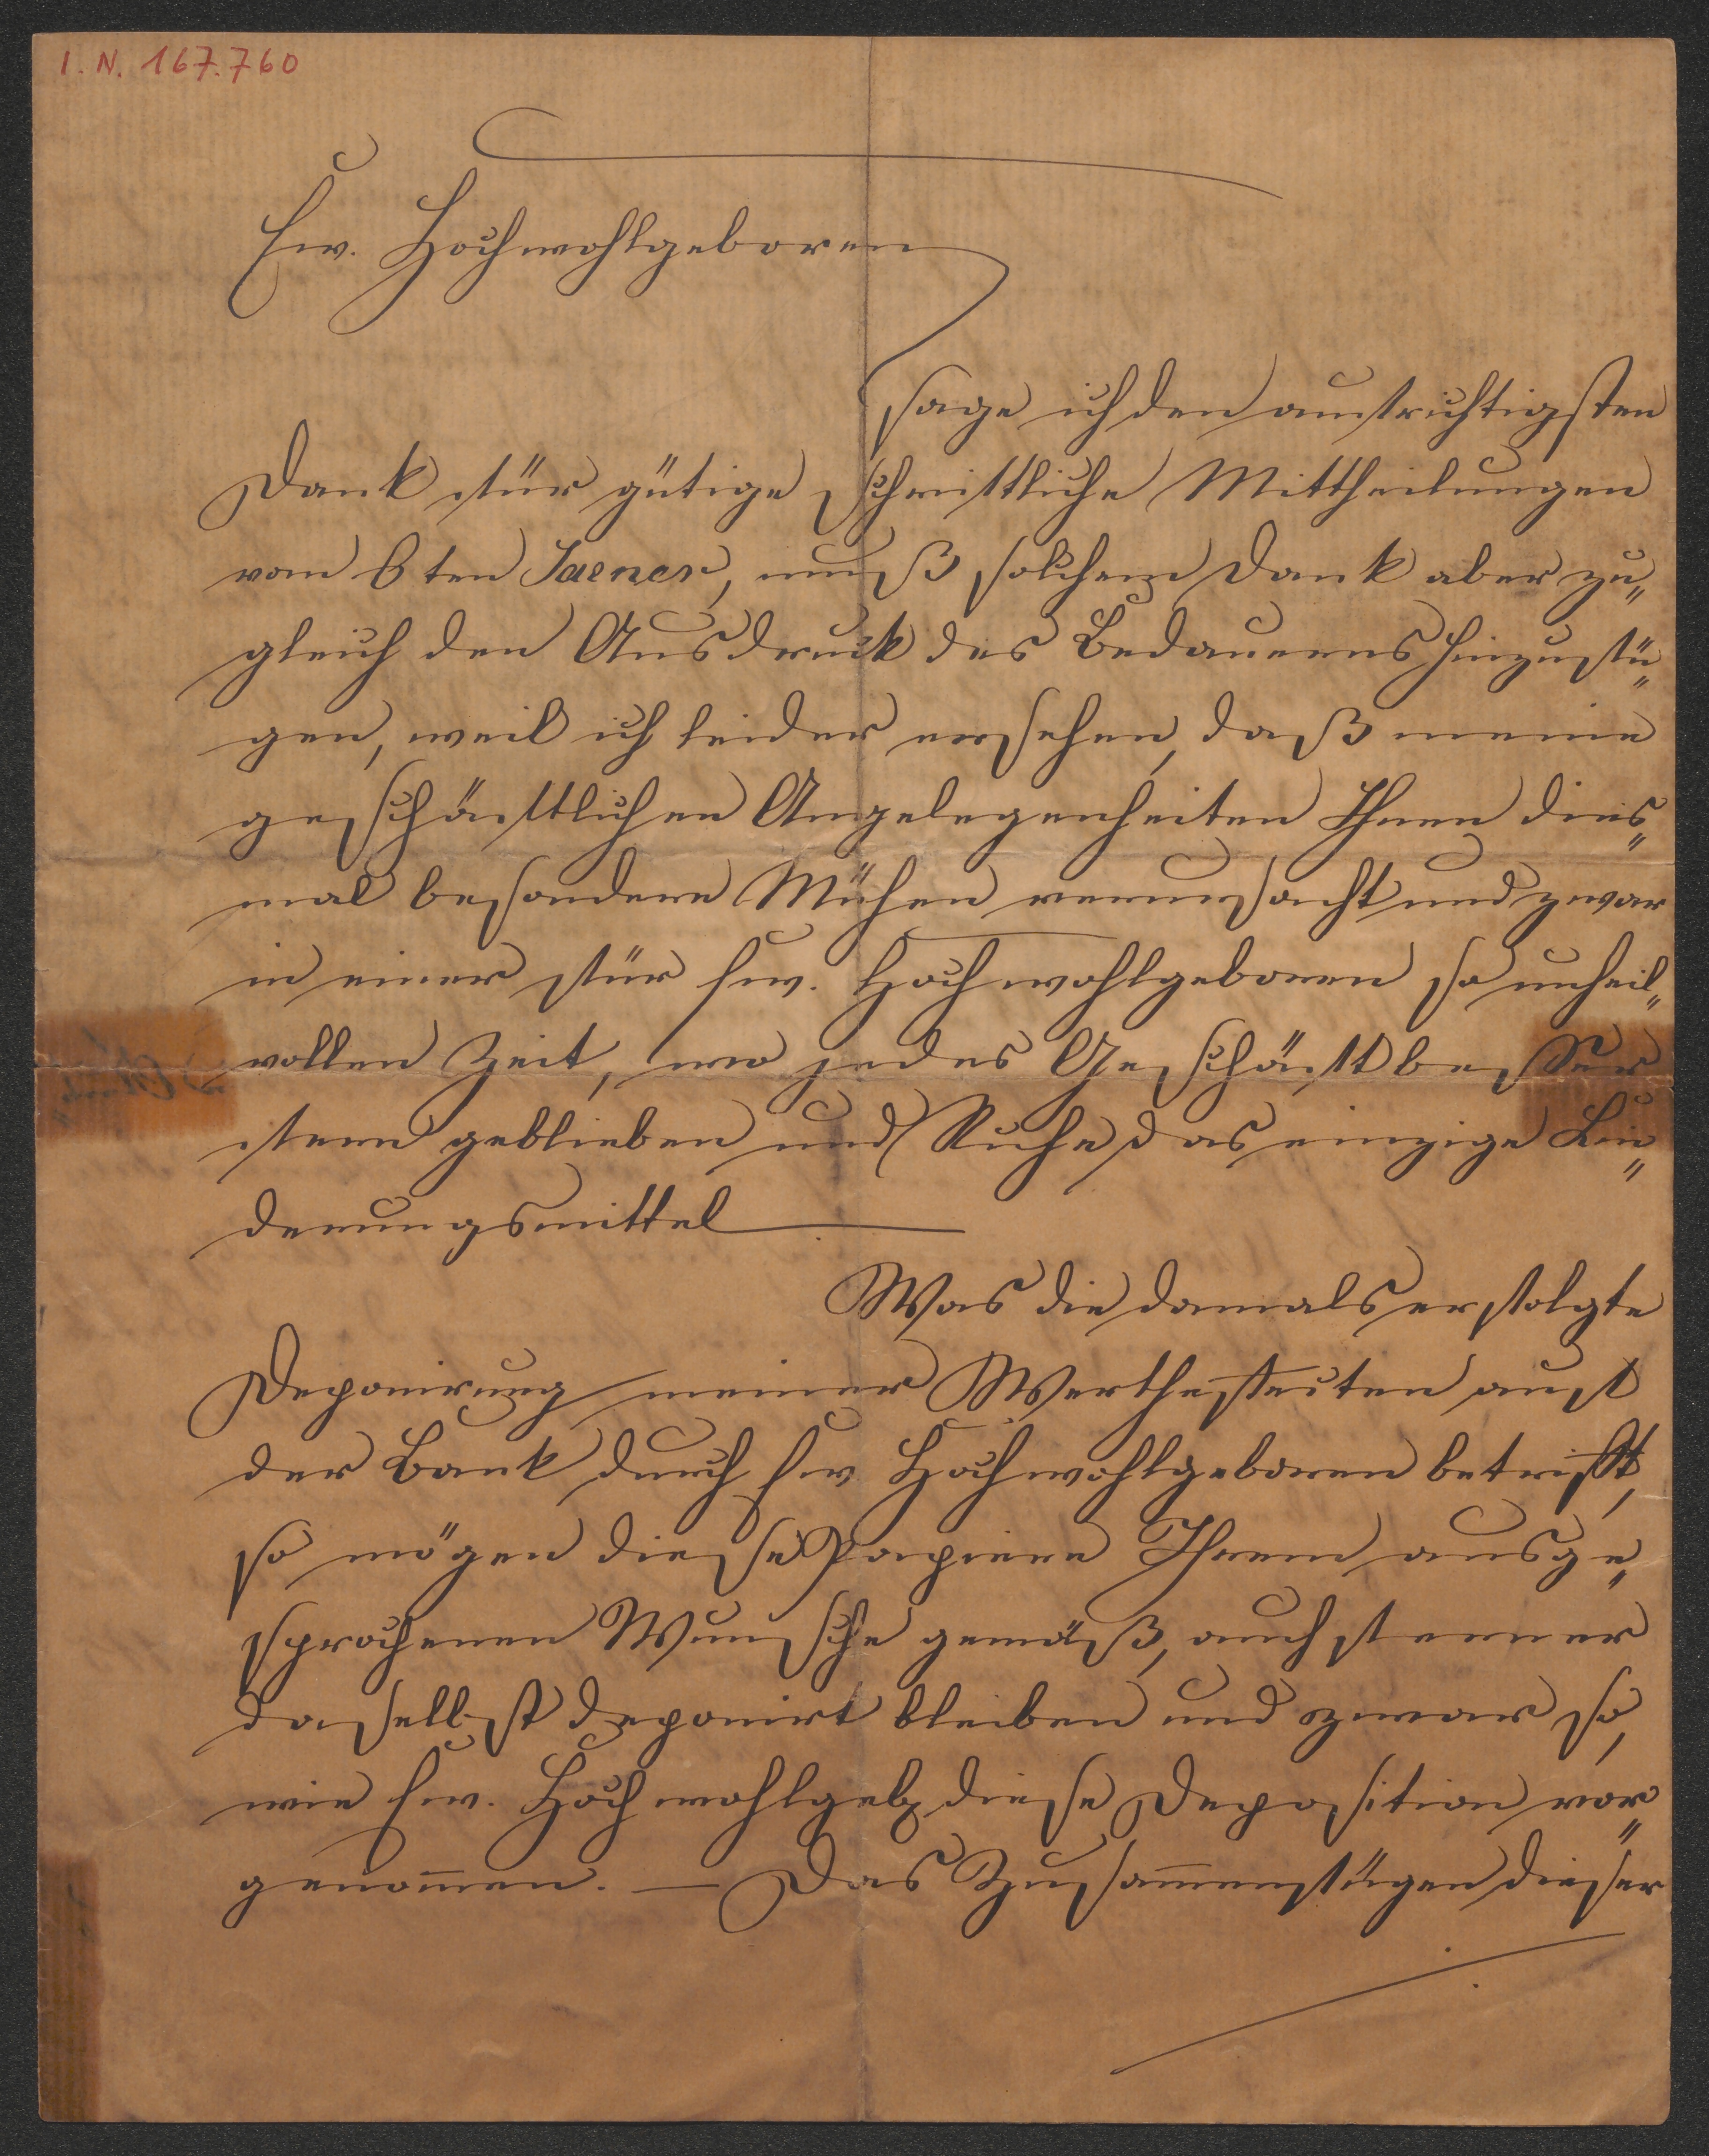 I. N. 167.760
Ew. Hochwohlgeboren
sage ich den aufrichtigsten
Dank für gütige schriftliche Mittheilungen
vom 6ten Jaener, muß solchem Dank aber zu„
gleich den Ausdruck des Bedauerns hinzufü„
gen, weil ich leider ersehen, daß meine
geschäftlichen Angelegenheiten Ihnen dies„
mal besondere Mühen verursacht und zwar
in einer für Ew. Hochwohlgeboren so unheil„
vollen Zeit, wo jedes Geschäft besser
fern geblieben und Ruhe das einzige Lin„
derungsmittel
Was die damals erfolgte
Deponirung meiner Wertheffecten auf
der Bank durch Ew. Hochwohlgeboren betrifft,
so mögen diese Papiere Ihrem ausge„
sprochenen Wunsche gemäß, auch ferner
daselbst deponirt bleiben und zwar so,
wie Ew. Hochwohlgeb diese Deposition vor„
genom̄en. — Das Zusam̄enfügen dieser